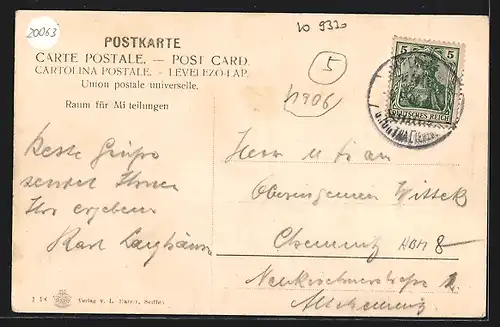 20063
10 9320
POSTKARTE
CARTE POSTALE. — POST CARD.
CARTOLINA POSTALE. - LEVELEZÖ-LAP.
Union postale universelle.
Raum für Mitteilungen
5
1906
5 5
DEUTSCHES REICH
Beste Grüße
sendet Ihnen
Ihr ergebener
Karl
Herrn u Frau
Oberingenieur Wittek
Chemnitz 8
Altchemnitz
Verlag v. L.